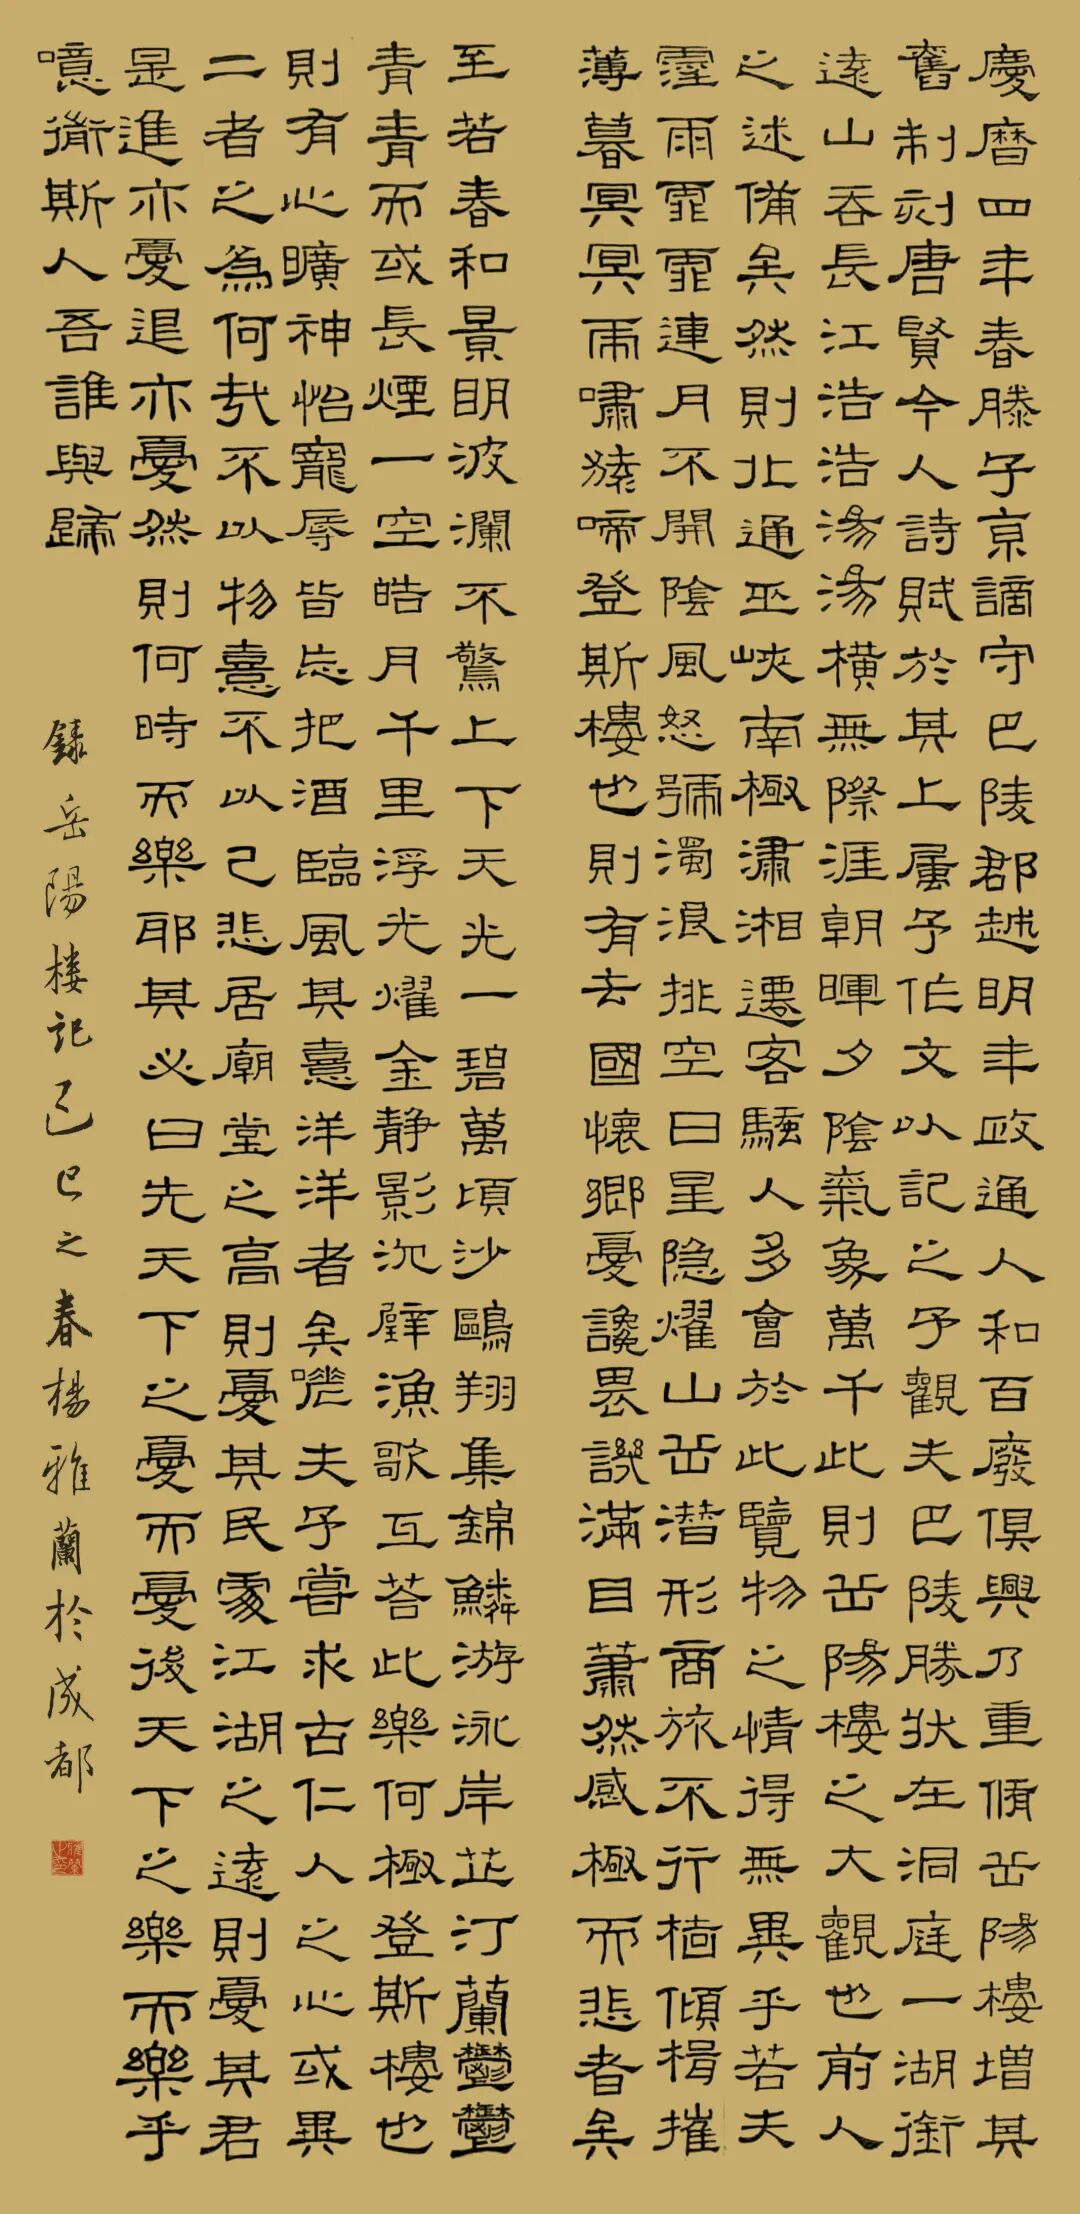 慶曆四年春滕子京謫守巴陵郡越明年政通人和百廢俱興乃重脩岳陽樓增其
舊制刻唐賢今人詩賦於其上属予作文以記之予觀夫巴陵勝狀在洞庭一湖銜
遠山吞長江浩浩湯湯橫無際涯朝暉夕陰氣象萬千此則岳陽樓之大觀也前人
之述備矣然則北通巫峽南極瀟湘遷客騷人多會於此覽物之情得無異乎若夫
霪雨霏霏連月不開陰風怒號濁浪排空日星隱耀山岳潛形商旅不行檣傾楫摧
薄暮冥冥虎嘯猿啼登斯樓也則有去國懷鄉憂讒畏譏滿目蕭然感極而悲者矣
至若春和景明波瀾不驚上下天光一碧萬頃沙鷗翔集錦鱗游泳岸芷汀蘭鬱鬱
青青而或長煙一空皓月千里浮光耀金靜影沉璧漁歌互荅此樂何極登斯樓也
則有心曠神怡寵辱皆忘把酒臨風其憙洋洋者矣嗟夫予嘗求古仁人之心或異
二者之為何哉不以物憙不以己悲居廟堂之高則憂其民處江湖之遠則憂其君
是進亦憂退亦憂然則何時而樂耶其必曰先天下之憂而憂後天下之樂而樂乎
噫微斯人吾誰與歸
錄岳陽楼記己巳之春楊雅蘭於成都
雅蘭之印